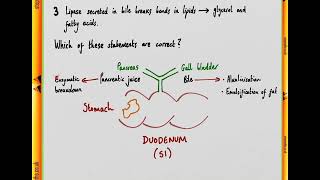 3 Lipase secreted in bile breaks bonds in lipids → glycerol and
fatty acids.
Which of these statements are correct?
Pancreas Gall bladder
Enzymatic ← Pancreatic juice Bile → • Neutralisation
breakdown • Emulsification of fat
Stomach
DUODENUM
(SI)